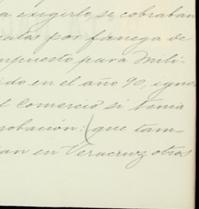 a exigirlo, se cobraban
por fanega de
mpuesto para Mili-
do en el año 90, igno-
l Comercio si tenia
robacion: (que tam-
an en Veracruz otros